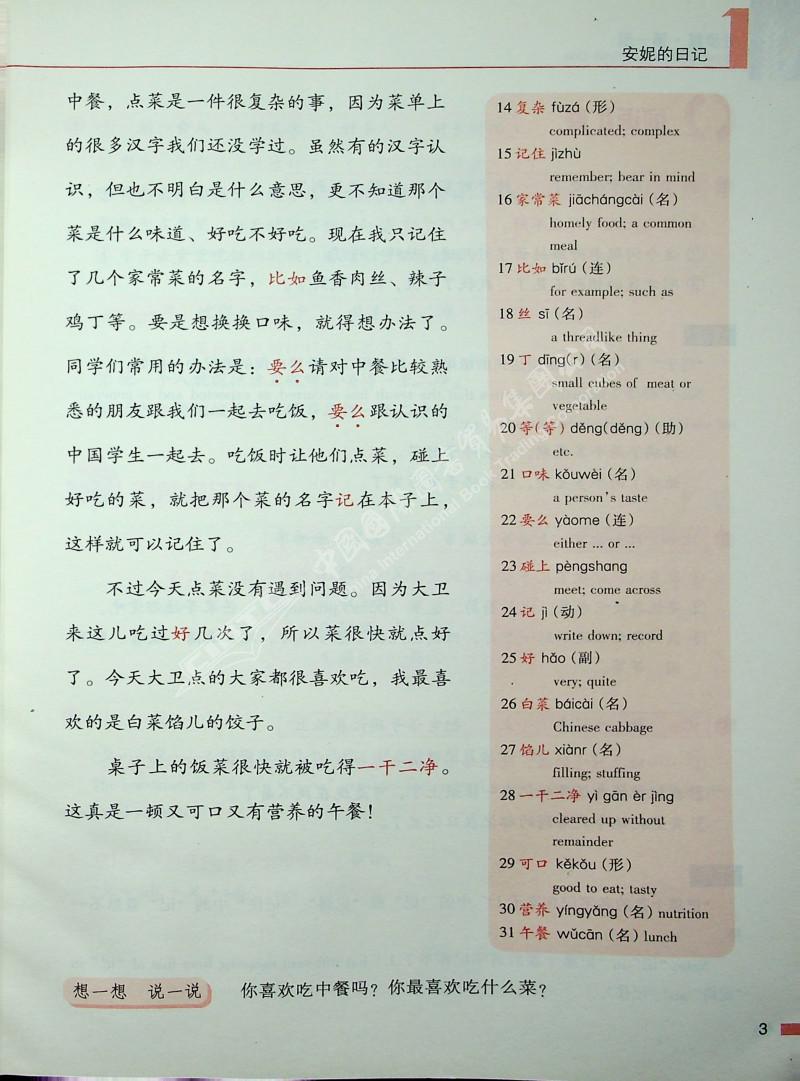 安妮的日记
1
中餐，点菜是一件很复杂的事，因为菜单上
的很多汉字我们还没学过。虽然有的汉字认
识，但也不明白是什么意思，更不知道那个
菜是什么味道、好吃不好吃。现在我只记住
了几个家常菜的名字，比如鱼香肉丝、辣子
鸡丁等。要是想换换口味，就得想办法了。
同学们常用的办法是：要么请对中餐比较熟
悉的朋友跟我们一起去吃饭，要么跟认识的
中国学生一起去。吃饭时让他们点菜，碰上
好吃的菜，就把那个菜的名字记在本子上，
这样就可以记住了。
不过今天点菜没有遇到问题。因为大卫
来这儿吃过好几次了，所以菜很快就点好
了。今天大卫点的大家都很喜欢吃，我最喜
欢的是白菜馅儿的饺子。
桌子上的饭菜很快就被吃得一干二净。
这真是一顿又可口又有营养的午餐！
14 复杂 fùzá (形)
complicated; complex
15 记住 jìzhù
remember; bear in mind
16 家常菜 jiāchángcài (名)
homely food; a common
meal
17 比如 bǐrú (连)
for example; such as
18 丝 sī (名)
a threadlike thing
19 丁 dīng(r) (名)
small cubes of meat or
vegetable
20 等(等) děng(děng) (助)
etc.
21 口味 kǒuwèi (名)
a person's taste
22 要么 yàome (连)
either ... or ...
23 碰上 pèngshang
meet; come across
24 记 jì (动)
write down; record
25 好 hǎo (副)
very; quite
26 白菜 báicài (名)
Chinese cabbage
27 馅儿 xiànr (名)
filling; stuffing
28 一干二净 yì gān èr jìng
cleared up without
remainder
29 可口 kěkǒu (形)
good to eat; tasty
30 营养 yíngyǎng (名) nutrition
31 午餐 wǔcān (名) lunch
想一想 说一说 你喜欢吃中餐吗？你最喜欢吃什么菜？
3